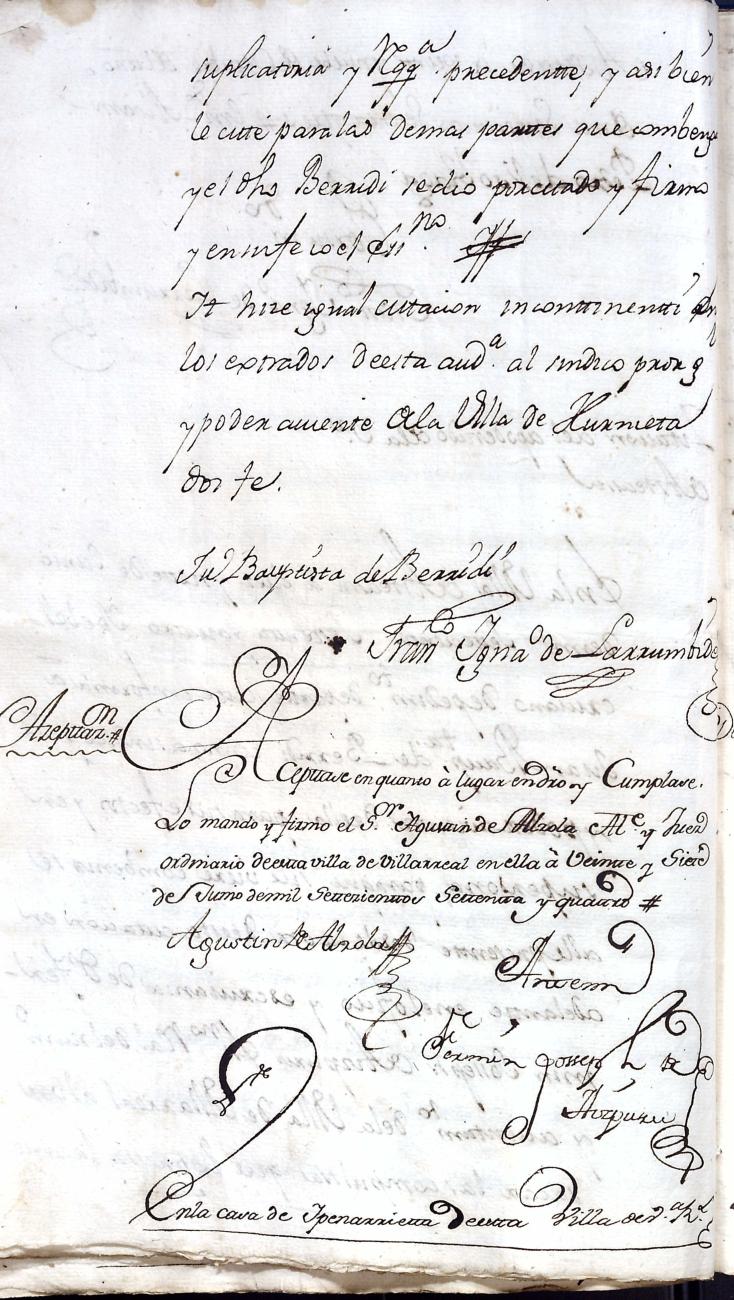 suplicatoria y Rqqª precedentte, y asi bien
le cité paralas demas parttes que combenga
y el dho Berridi sedio porcitado y firmo
y ensufe io el Essno
It hize igual cittacion inconttinentti en
los extrados deesta audª al sindico pror g
y poder aviente dela Villa de Hurnieta
doi fe.
Jn Bauptista de Berridi
Franco Ignao de Larrumbide
Azepttazn #
Aceptase en quanto à lugar endro y Cumplase.
Lo mando y firmo el Sor Agustin de Alzola Alce y Juez
ordinario deesta villa de Villarreal en ella à Veintte y Siete
de Junio demil Settezienttos Settenta y quattro #
Agustin de Alzola
Antemi
Fermin Joseph de
Aizpuru
En la casa de Ipenarrietta deesta Villa de